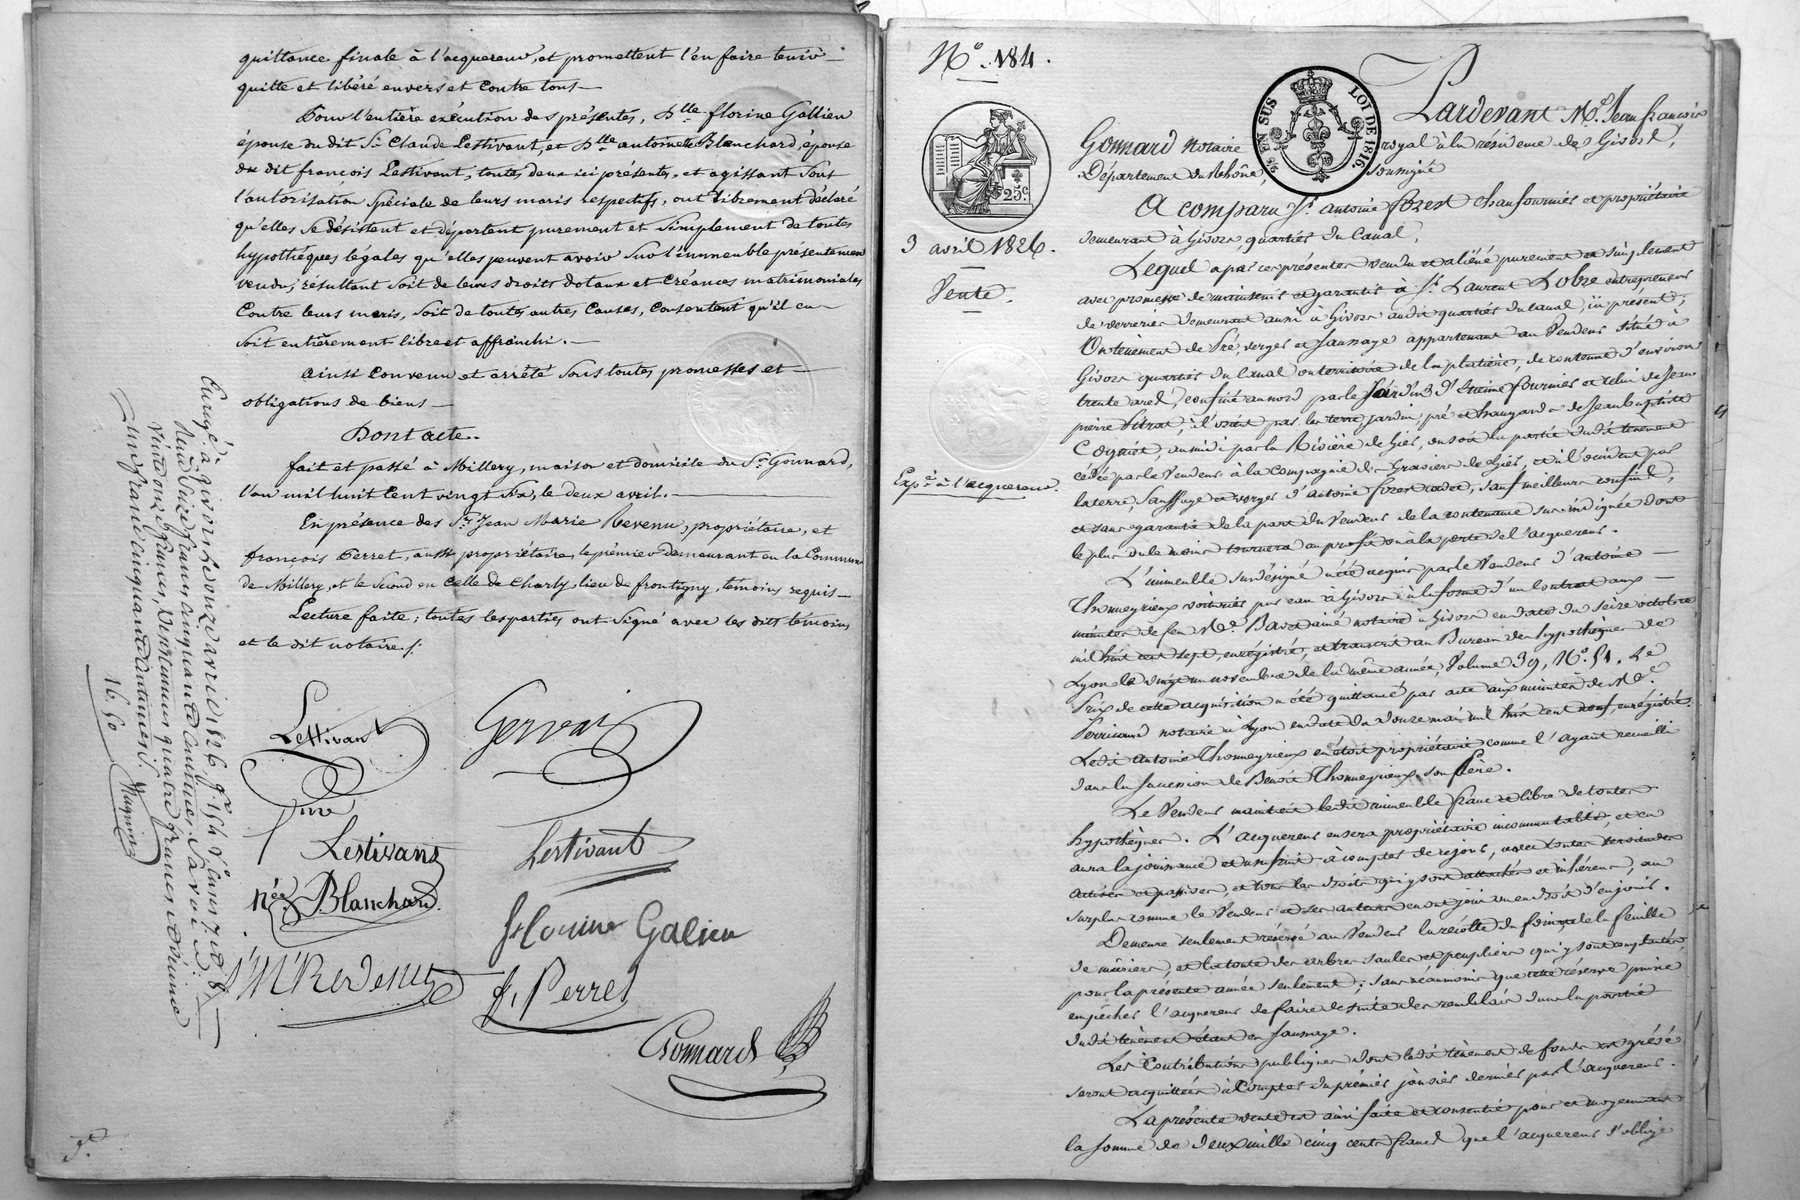 quittance finale à l'acquereur, et promettent l'en faire tenir
quitte et libéré envers et contre tous
Pour l'entière exécution des présentes, Dlle florine Gallien
épouse du dit Sr Claude Lestivant, et Dlle antoinette Blanchard, épouse
du dit françois Lestivant, toutes deux ici présentes, et agissant sous
l'autorisation spéciale de leurs maris respectifs, ont librement déclaré
qu'elles se désistent et départent purement et simplement de toutes
hypothèques légales qu'elles peuvent avoir sur l'immeuble présentement
vendu, résultant soit de leurs droits dotaux et créances matrimoniales
contre leurs maris, soit de toutes autres causes, consentent qu'il en
soit entièrement libre et affranchi.
ainsi convenu et arrêté sous toutes promesses et
obligations de biens
Dont acte.
fait et passé à Millery, maison et domicile du Sr Gonnard,
l'an mil huit cent vingt six, le deux avril.
En présence des Srs Jean Marie Revenu, propriétaire, et
françois Perret, aussi propriétaire, le prémier demeurant en la Commune
de Millery, et le second en celle de Charly, lieu de frontigny, témoins requis
Lecture faite, toutes les parties ont signé avec les dits témoins
et le dit notaire.
Lestivant
Gervais
Lestivant
Lestivant
née Blanchard
florine Galien
J M Revenu
f. Perret
Gonnard
Enrégé à givors le onze avril 1826
vingt deux francs, et pour quatre francs et dixième
cinquante centimes
16.50
No. 184.
25c.
EN SUS
LOI DE 1816
3 avril 1826.
Vente.
Expé à l'acquereur.
Pardevant Me. Jean françois
Gonnard notaire royal à la résidence de Givors,
Département du Rhône, soussigné
A comparu Sr. antoine forest chaufournier et propriétaire
demeurant à Givors, quartier du Canal,
Lequel a par ces présentes vendu et aliéné purement et simplement
avec promesse de maintenir et garantir à Sr. Laurent Lobre entrepreneur
de verreries demeurant aussi à Givors audit quartier du Canal, ici présent,
Un tènement de Pré, verger et saussaye appartenant au Vendeur situé à
Givors quartier du Canal ou territoire de la platière, de contenue d'environ
trente ares, confiné au nord par le Jardin d'Etienne fournier et celui de Jean
pierre Pitrat, à l'orient par les terre, jardin, pré et hangard de Jean baptiste
Cognet, au midi par la Rivière de Gier, ou soit la partie dudit tènement
cédée par le Vendeur à la Compagnie des Graviers de Gier, et à l'occident par
la terre, saussaye et verger d'antoine forest cadet, sauf meilleurs confins,
et sans garantie de la part du Vendeur de la contenance sus-indiquée dont
le plus ou le moins tournera au profit ou à la perte de l'acquereur.
L'immeuble susdésigné a été acquis par le Vendeur d'antoine
Thomeyrieux voiturier par eau à Givors à la forme d'un contrat aux
minutes de feu Me. Bavet ainé notaire à Givors en date du seize octobre
mil huit cent sept, enrégistré, et transcrit au Bureau des hypothèques de
Lyon le vingt un novembre de la même année, Volume 39, No. 51. Le
Prix de cette acquisition a été quittancé par acte aux minutes de Me.
Perricaud notaire à Lyon en date du douze mai mil huit cent neuf, enrégistré.
Ledit Antoine Thomeyrieux en étoit propriétaire comme l'ayant recueilli
dans la succession de Benoit Thomeyrieux son Père.
Le Vendeur maintient ledit immeuble franc et libre de toutes
hypothèques. L'acquereur en sera propriétaire incommutable, et en
aura la jouissance et usufruit à compter de ce jour, avec toutes servitudes
actives et passives, et tous les droits qui y sont attachés et inhérens, au
surplus comme le Vendeur et ses auteurs en ont joui ou eu droit d'en jouir.
Demeure seulement réservé au Vendeur la récolte du foin et de la feuille
de mûriers, et la tonte des arbres saules et peupliers qui y sont complantés,
pour la présente année seulement, sans néanmoins que cette réserve puisse
empêcher l'acquereur de faire de suite des remblais dans la partie
dudit tènement étant en saussaye.
Les Contributions publiques dont ledit tènement de fonds est grévé
seront acquittées à Compter du prémier janvier dernier par l'acquereur.
La présente vente est ainsi faite et consentie pour et moyennant
la somme de deux mille cinq cents francs que l'acquereur s'oblige